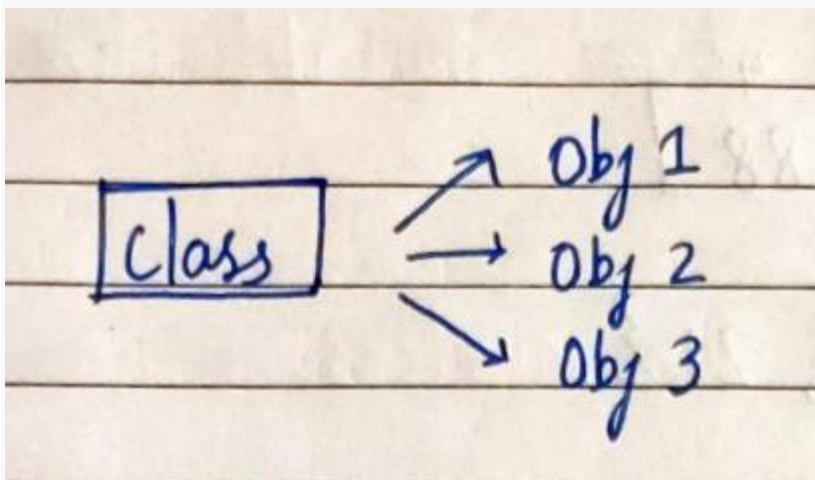 class
Obj 1
Obj 2
Obj 3